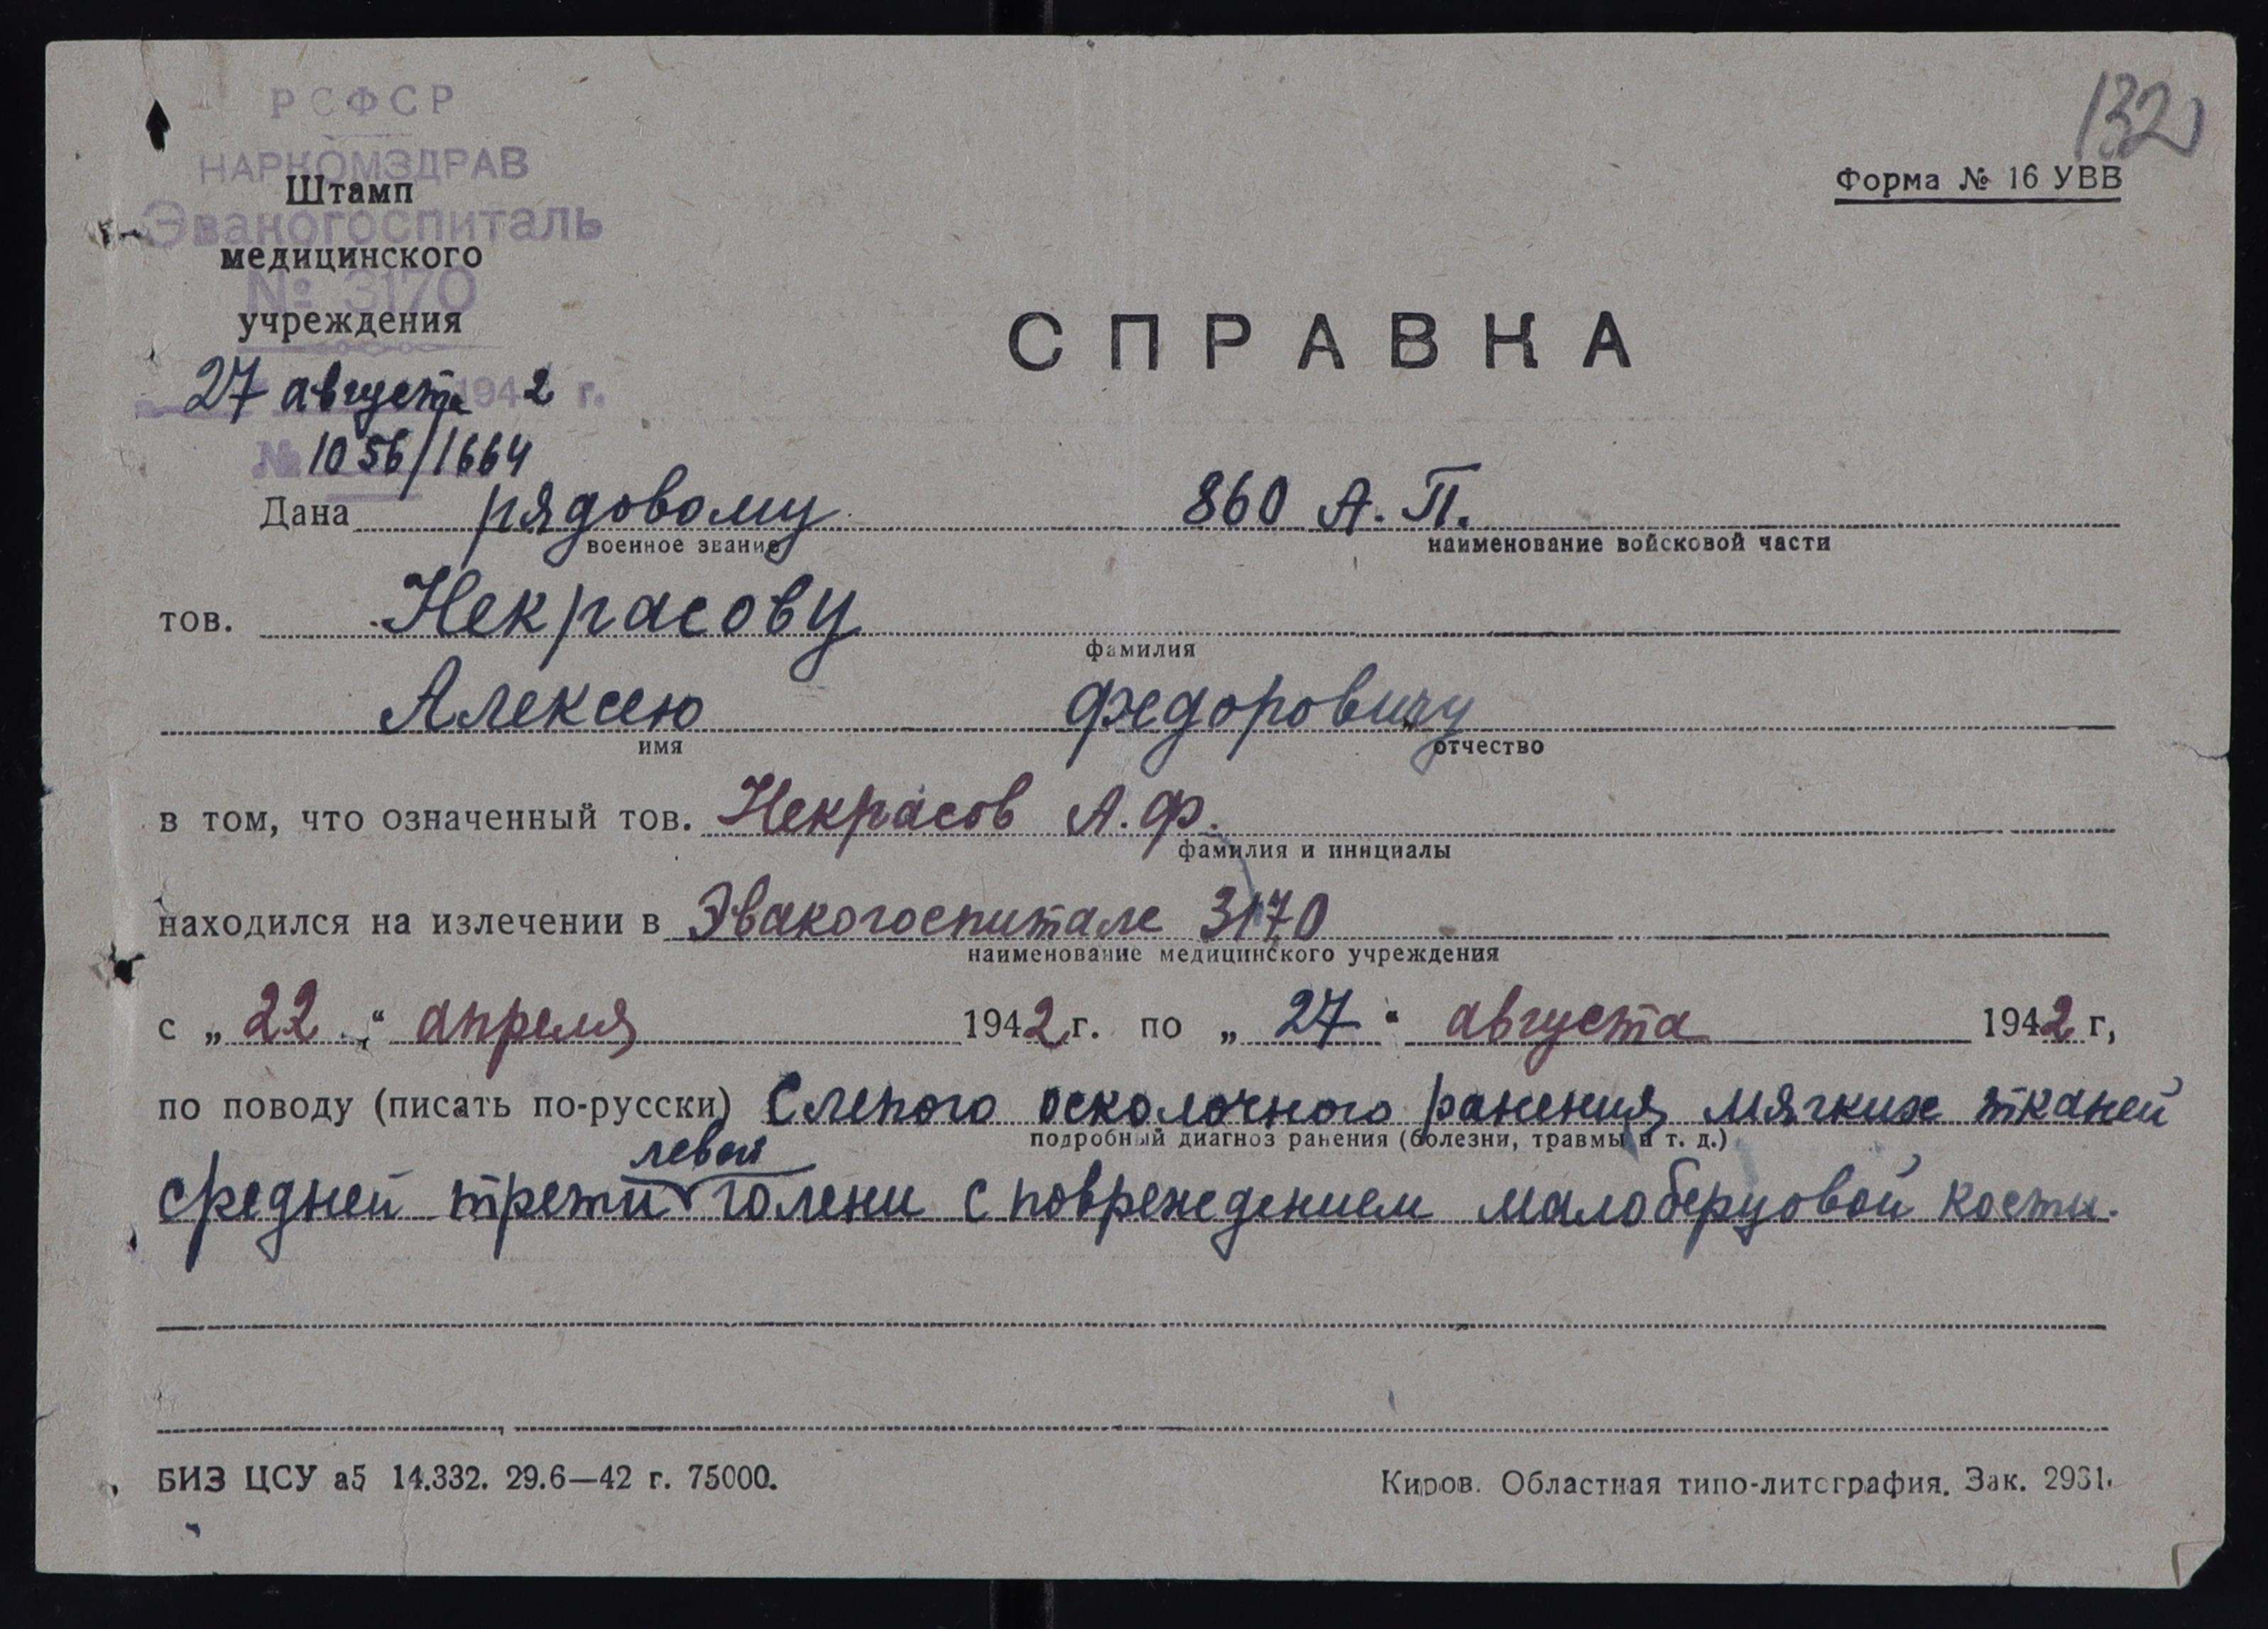 132
РСФСР
НАРКОМЗДРАВ
Штамп
Эвакогоспиталь
медицинского
№ 3170
учреждения
Форма № 16 УВВ
СПРАВКА
27 августа 1942 г.
№ 1056/1664
Дана рядовому 860 А. П.
военное звание наименование войсковой части
тов. Некрасову
фамилия
Алексею Федоровичу
имя отчество
в том, что означенный тов. Некрасов А. Ф.
фамилия и инициалы
находился на излечении в Эвакогоспитале 3170
наименование медицинского учреждения
с „22“ апреля 1942 г. по „27“ августа 1942 г,
по поводу (писать по-русски) Слепого осколочного ранения мягких тканей
подробный диагноз ранения (болезни, травмы и т. д.)
левой
средней трети голени с повреждением малоберцовой кости.
БИЗ ЦСУ а5 14.332. 29.6—42 г. 75000.
Киров. Областная типо-литография. Зак. 2931.